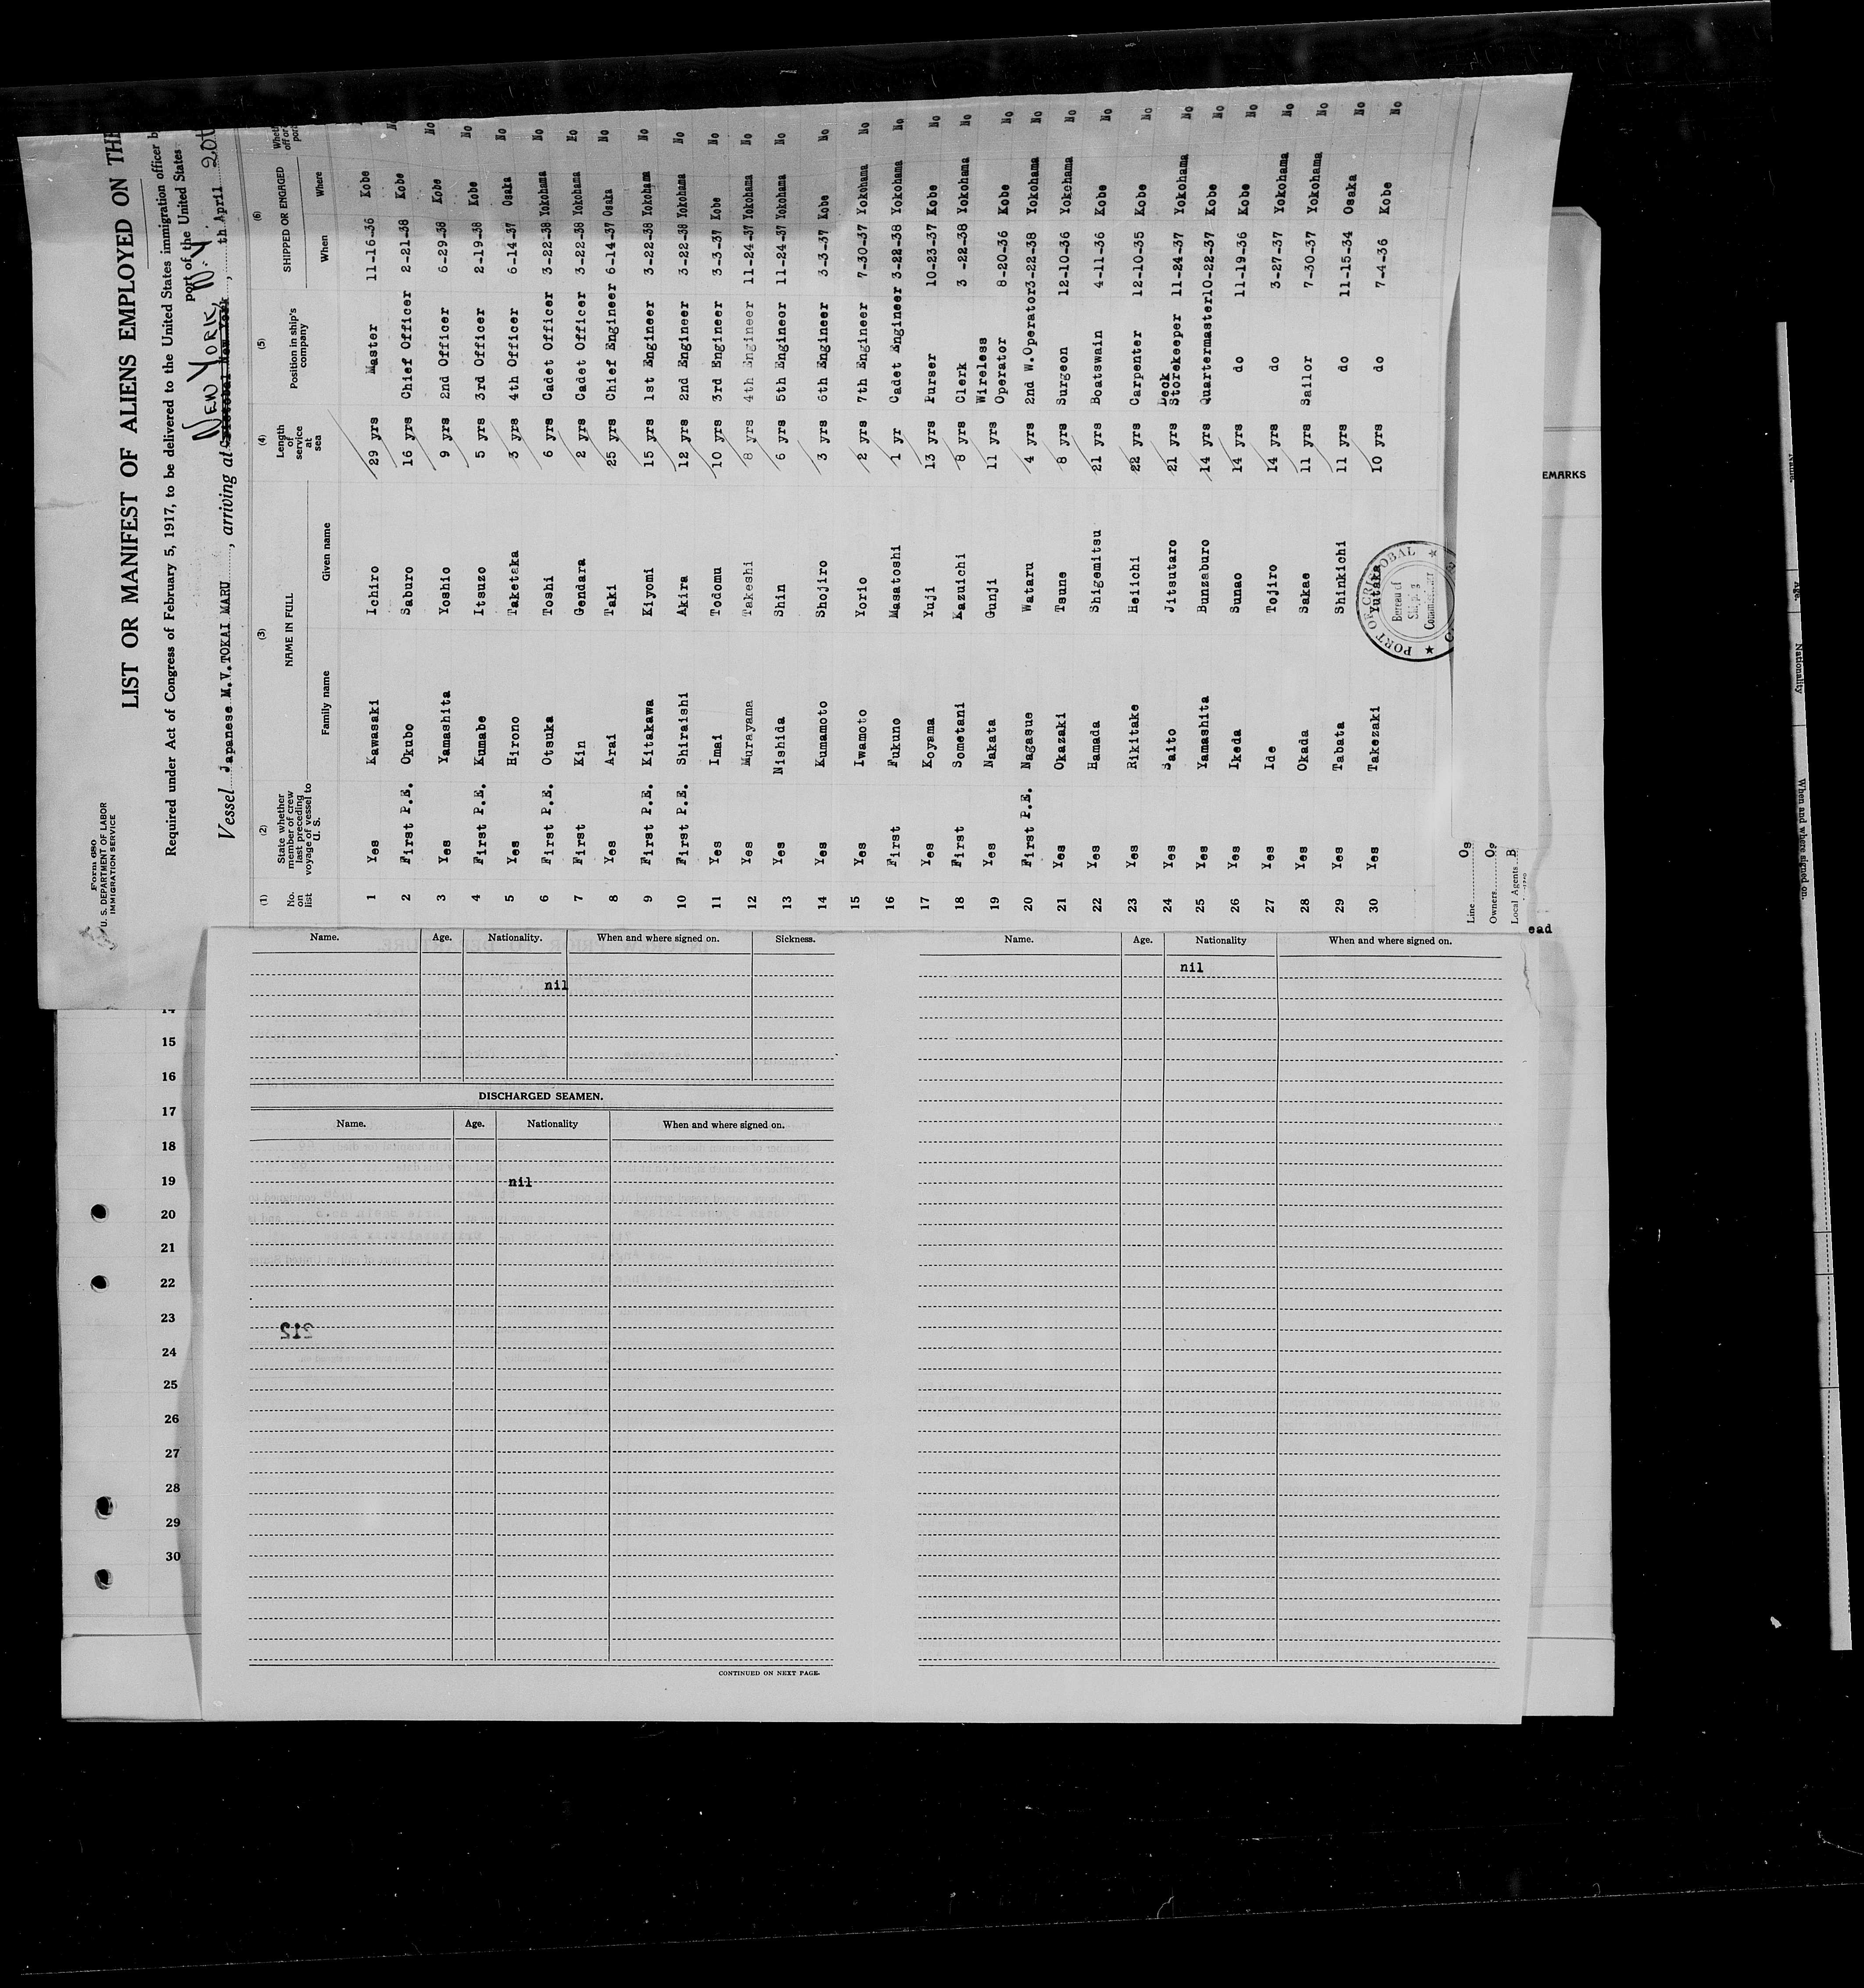 Form 680
U. S. DEPARTMENT OF LABOR
IMMIGRATION SERVICE
LIST OR MANIFEST OF ALIENS EMPLOYED ON THE
Required under Act of Congress of February 5, 1917, to be delivered to the United States immigration officer b
port of the United States
NEW YORK, N.Y.
Vessel Japanese M.V.TOKAI MARU, arriving at Cristobal New York, th April 20t
(1) (2) (3) (4) (5) (6)
No. on list State whether member of crew last preceding voyage of vessel to U. S. NAME IN FULL Length of service at sea Position in ship's company SHIPPED OR ENGAGED
Family name Given name When Where
1 Yes Kawasaki Ichiro 29 yrs Master 11-16-36 Kobe
2 First P.E. Okubo Saburo 16 yrs Chief Officer 2-21-38 Kobe No
3 Yes Yamashita Yoshio 9 yrs 2nd Officer 6-29-38 Kobe No
4 First P.E. Kumabe Itsuzo 5 yrs 3rd Officer 2-19-38 Kobe No
5 Yes Hirono Taketaka 3 yrs 4th Officer 6-14-37 Osaka No
6 First P.E. Otsuka Toshi 6 yrs Cadet Officer 3-22-38 Yokohama No
7 First Kin Gendara 2 yrs Cadet Officer 3-22-38 Yokohama No
8 Yes Arai Taki 25 yrs Chief Engineer 6-14-37 Osaka No
9 First P.E. Kitakawa Kiyomi 15 yrs 1st Engineer 3-22-38 Yokohama No
10 First P.E. Shiraishi Akira 12 yrs 2nd Engineer 3-22-38 Yokohama No
11 Yes Imai Todomu 10 yrs 3rd Engineer 3-3-37 Kobe No
12 Yes Murayama Takeshi 8 yrs 4th Engineer 11-24-37 Yokohama No
13 Yes Nishida Shin 6 yrs 5th Engineer 11-24-37 Yokohama No
14 Yes Kumamoto Shojiro 3 yrs 6th Engineer 3-3-37 Kobe No
15 Yes Iwamoto Yorio 2 yrs 7th Engineer 7-30-37 Yokohama No
16 First Fukuno Masatoshi 1 yr Cadet Engineer 3-22-38 Yokohama No
17 Yes Koyama Yuji 13 yrs Purser 10-23-37 Kobe No
18 First Sometani Kazuichi 8 yrs Clerk 3 -22-38 Yokohama No
19 Yes Nakata Gunji 11 yrs Wireless Operator 8-20-36 Kobe No
20 First P.E. Nagasue Wataru 4 yrs 2nd W.Operator 3-22-38 Yokohama No
21 Yes Okazaki Tsune 8 yrs Surgeon 12-10-36 Yokohama No
22 Yes Hamada Shigemitsu 21 yrs Boatswain 4-11-36 Kobe No
23 Yes Rikitake Heiichi 22 yrs Carpenter 12-10-35 Kobe No
24 Yes Saito Jitsutaro 21 yrs Deck Storekeeper 11-24-37 Yokohama No
25 Yes Yamashita Bunzaburo 14 yrs Quartermaster 10-22-37 Kobe No
26 Yes Ikeda Sunao 14 yrs do 11-19-36 Kobe No
27 Yes Ide Tojiro 14 yrs do 3-27-37 Yokohama No
28 Yes Okada Sakae 11 yrs Sailor 7-30-37 Yokohama No
29 Yes Tabata Shinkichi 11 yrs do 11-15-34 Osaka No
30 Yes Takezaki Yutaka 10 yrs do 7-4-36 Kobe No
PORT OF CRISTOBAL
Bureau of
Shipping
Commissioner
Line
Owners
Local Agents
EMARKS
ead
Name. Age. Nationality. When and where signed on. Sickness.
nil
DISCHARGED SEAMEN.
Name. Age. Nationality When and where signed on.
nil
212
CONTINUED ON NEXT PAGE.
Name. Age. Nationality When and where signed on.
nil
14
15
16
17
18
19
20
21
22
23
24
25
26
27
28
29
30
Name. Age. Nationality When and where signed on.